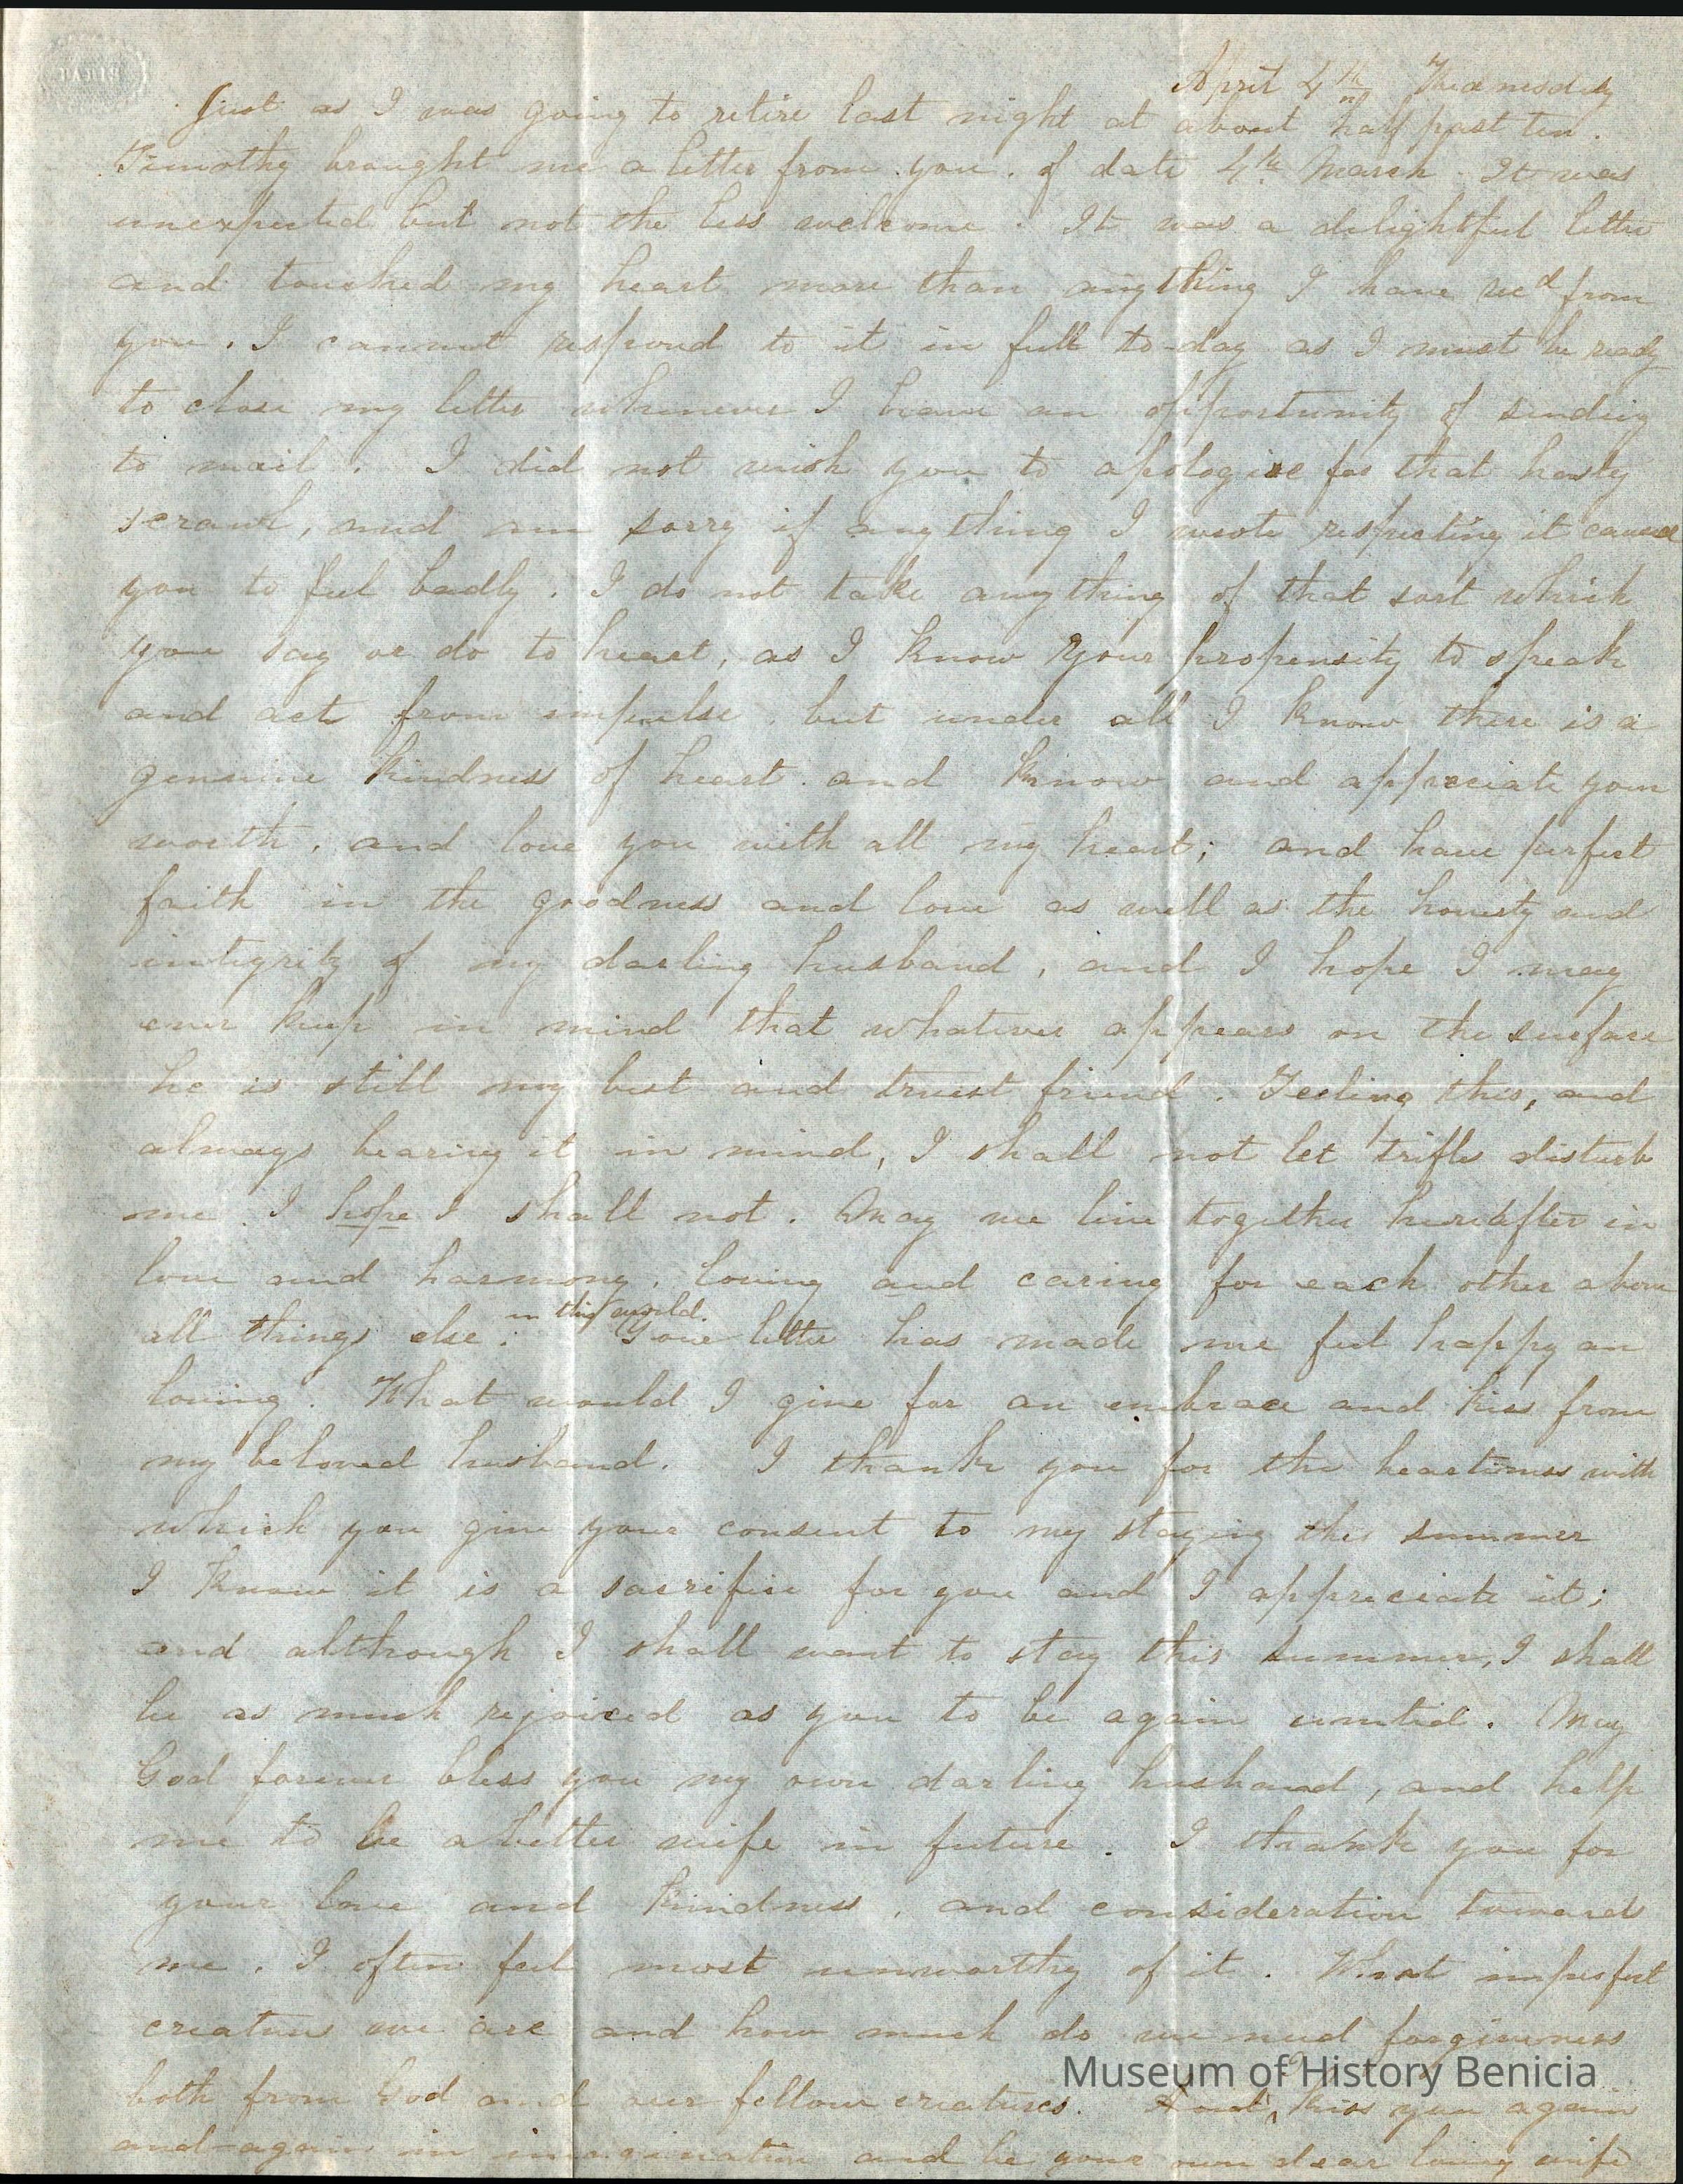 PARIS
April 4th Wednesday
Just as I was going to retire last night at about half past ten.
Timothy brought me a letter from you. of date 4th March. It was
unexpected but not the less welcome. It was a delightful letter
and touched my heart more than anything I have recd from
you. I cannot respond to it in full to-day as I must be ready
to close my letter whenever I have an opportunity of sending
to mail. I did not wish you to apologise for that hasty
scrawl, and am sorry if anything I wrote respecting it caused
you to feel badly. I do not take anything of that sort which
you say or do to heart, as I know your propensity to speak
and act from impulse. but under all I know there is a
genuine kindness of heart. and know and appreciate your
worth, and love you with all my heart; and have perfect
faith in the goodness and love as well as the honesty and
integrity of my darling husband, and I hope I may
ever keep in mind that whatever appears on the surface
he is still my best and truest friend. Feeling this, and
always bearing it in mind, I shall not let trifles disturb
me. I hope I shall not. May we live together hereafter in
love and harmony. loving and caring for each other above
all things else in this world. Your letter has made me feel happy an
loving. What would I give for an embrace and kiss from
my beloved husband. I thank you for the heartiness with
which you give your consent to my staying this summer
I know it is a sacrifice for you and I appreciate it;
and although I shall want to stay this summer, I shall
be as much rejoiced as you to be again united. May
God forever bless you my own darling husband, and help
me to be a better wife in future. I thank you for
your love and kindness, and consideration towards
me. I often feel most unworthy of it. What imperfect
creatures we are and how much do we need forgiveness
both from God and our fellow creatures. kiss you again
and again in imagination and be your own dear loving wife
Museum of History Benicia